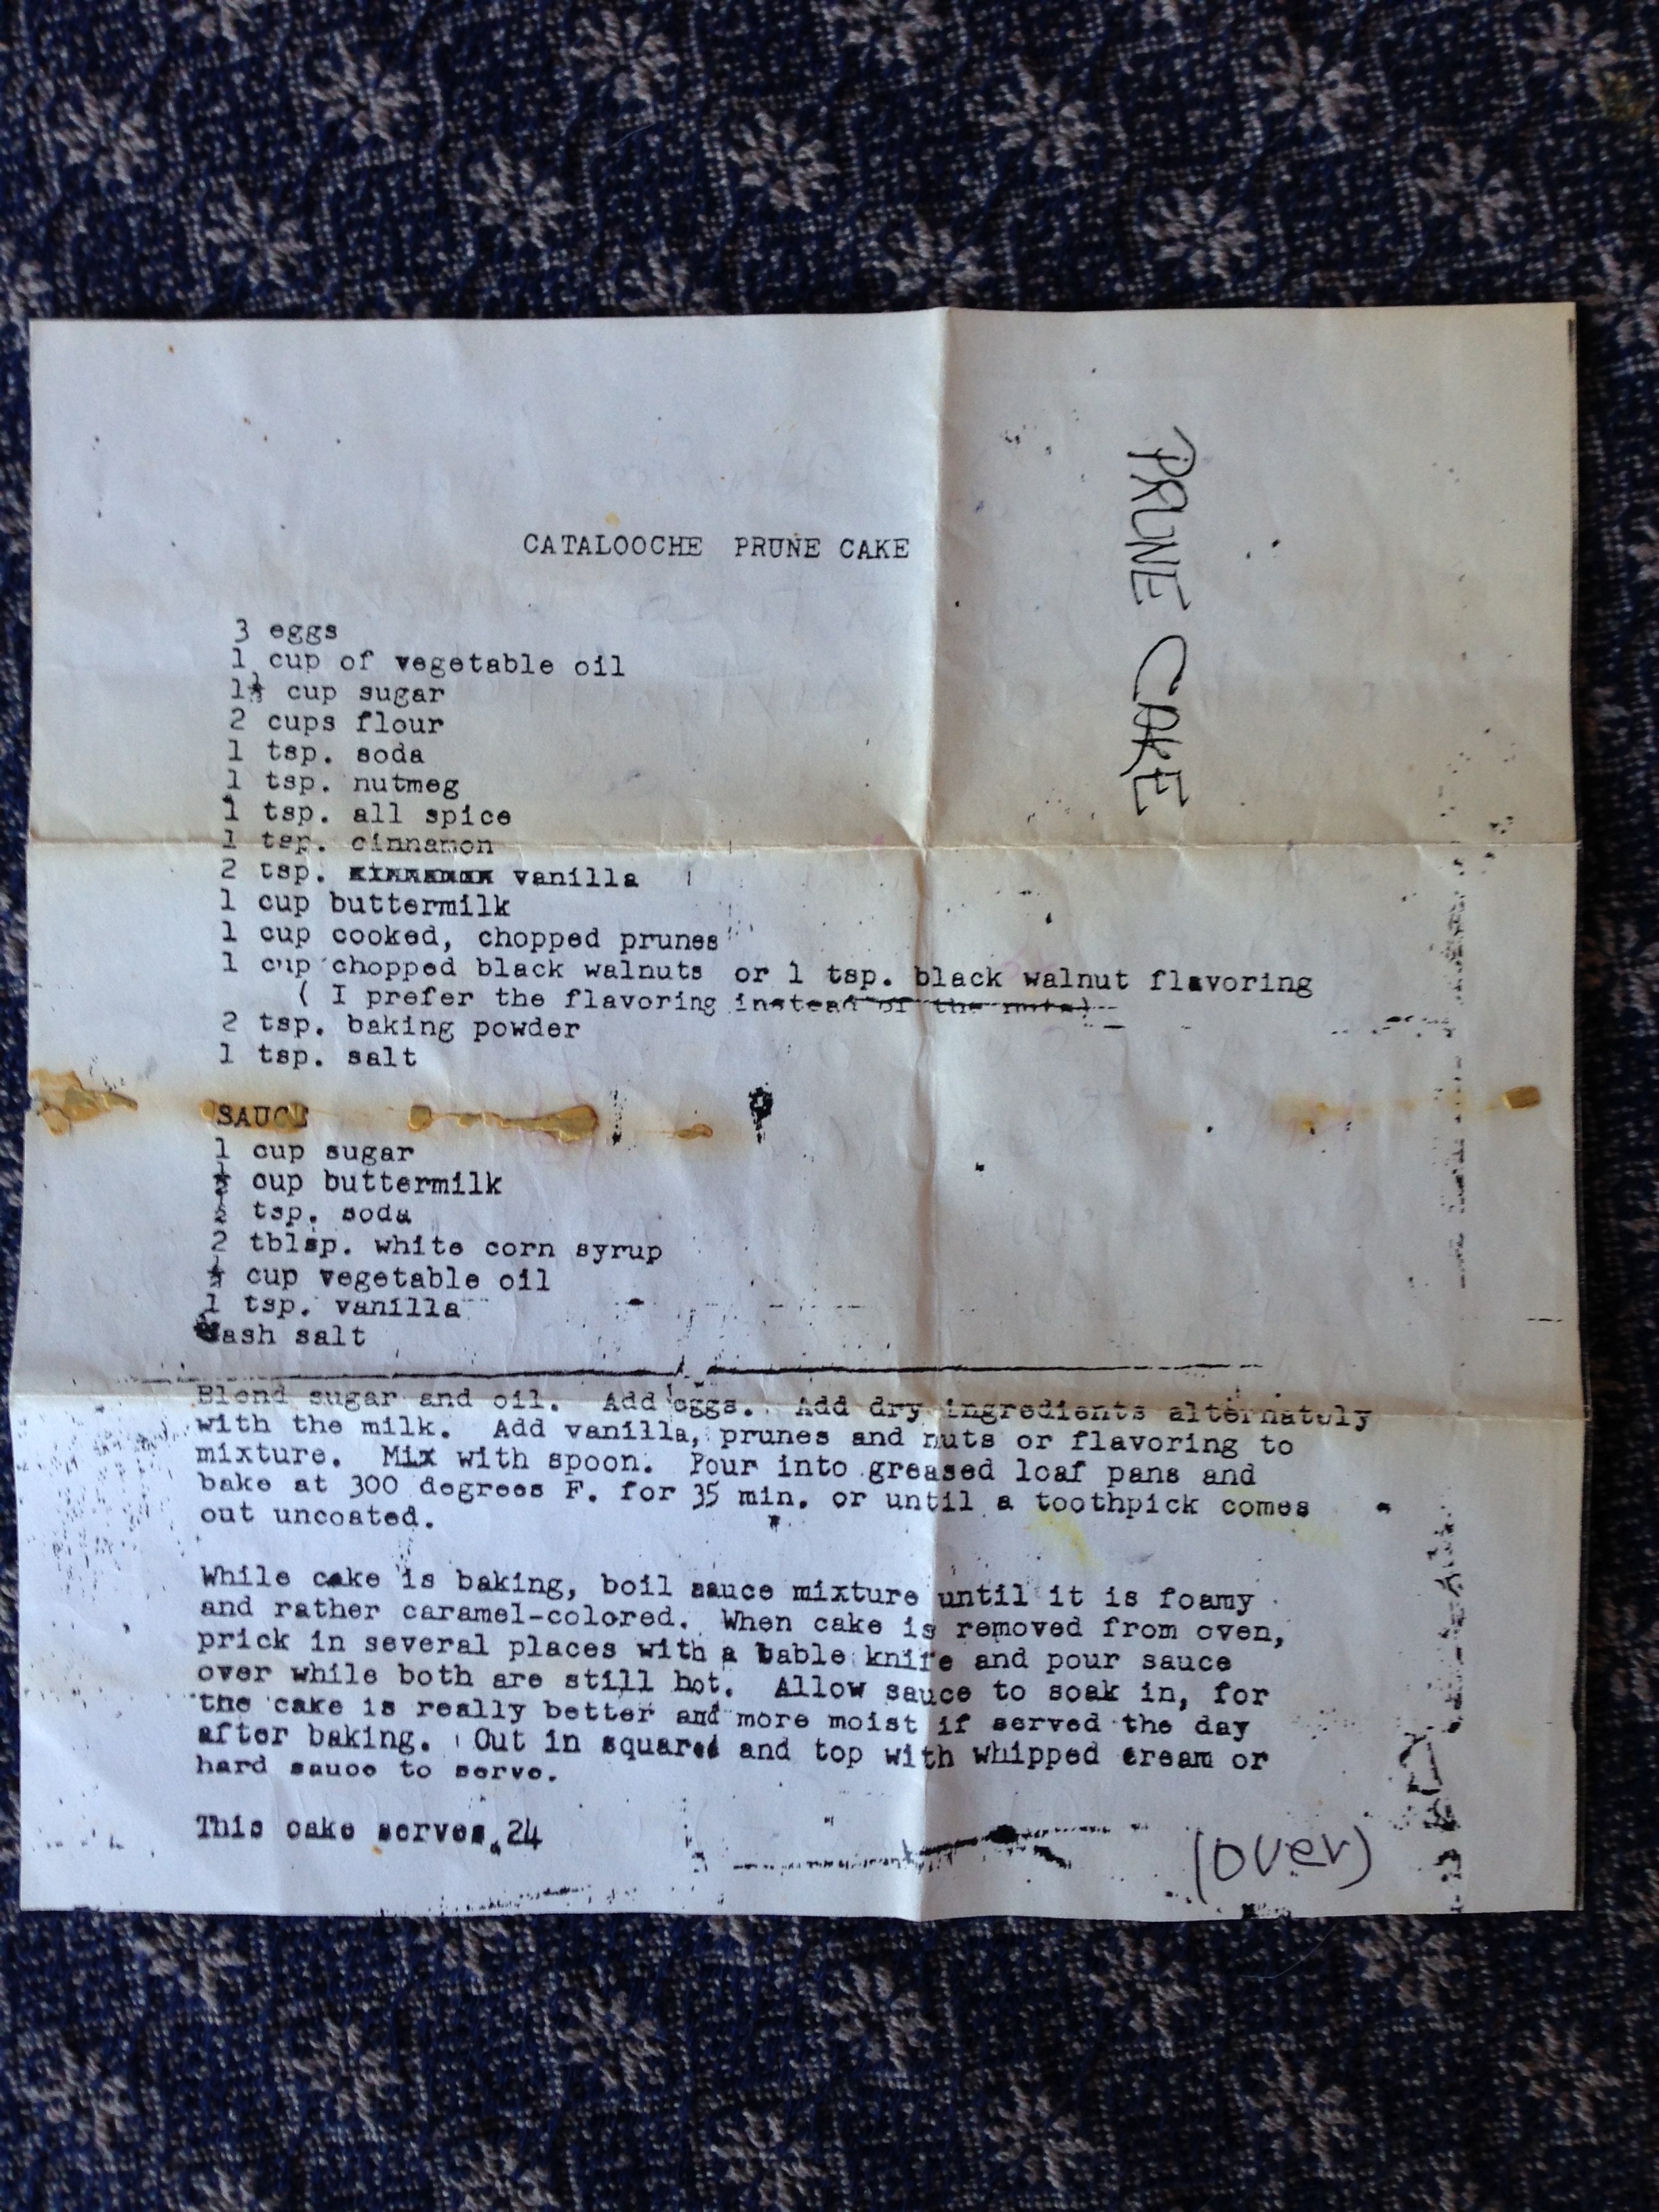 CATALOOCHE PRUNE CAKE
PRUNE CAKE
3 eggs
1 cup of vegetable oil
1½ cup sugar
2 cups flour
1 tsp. soda
1 tsp. nutmeg
1 tsp. all spice
1 tsp. cinnamon
2 tsp. vanilla
1 cup buttermilk
1 cup cooked, chopped prunes
1 cup chopped black walnuts or 1 tsp. black walnut flavoring
( I prefer the flavoring instead of the nuts)
2 tsp. baking powder
1 tsp. salt
SAUCE
1 cup sugar
½ cup buttermilk
½ tsp. soda
2 tblsp. white corn syrup
cup vegetable oil
1 tsp. vanilla
dash salt
Blend sugar and oil. Add eggs. Add dry ingredients alternately
with the milk. Add vanilla, prunes and nuts or flavoring to
mixture. Mix with spoon. Pour into greased loaf pans and
bake at 300 degrees F. for 35 min. or until a toothpick comes
out uncoated.
While cake is baking, boil sauce mixture until it is foamy
and rather caramel-colored. When cake is removed from oven,
prick in several places with a table knife and pour sauce
over while both are still hot. Allow sauce to soak in, for
the cake is really better and more moist if served the day
after baking. Cut in squares and top with whipped cream or
hard sauce to serve.
This cake serves 24
(over)